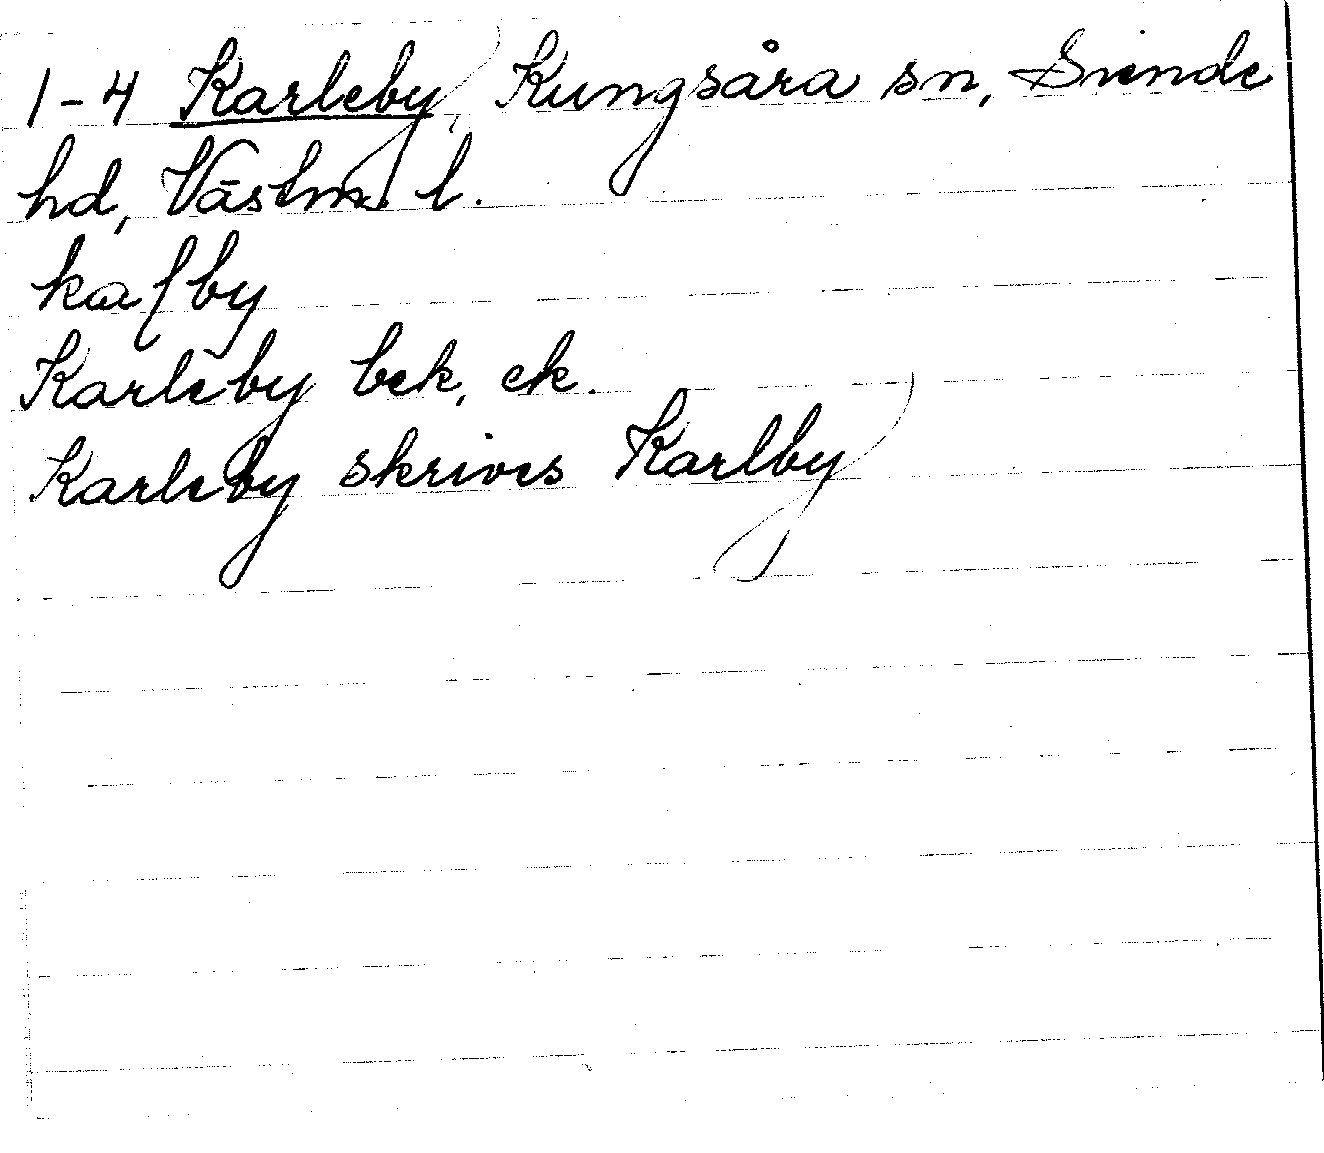 1-4 Karleby, Kungsåra sn, Siende
hd, Västm. l.
kaſby
Karleby bek, ek.
Karleby skrives Karlby